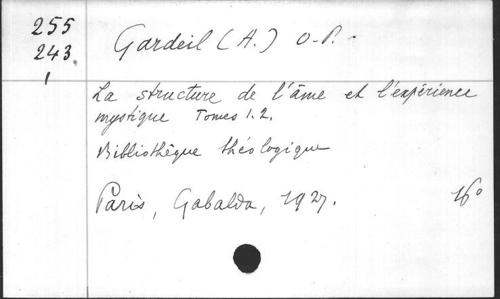 255
243
1
Gardeil (A.) O.P. -
La structure de l'âme et l'expérience
mystique Tomes 1.2.
Bibliothèque théologique
Paris, Gabalda, 1927. 16°